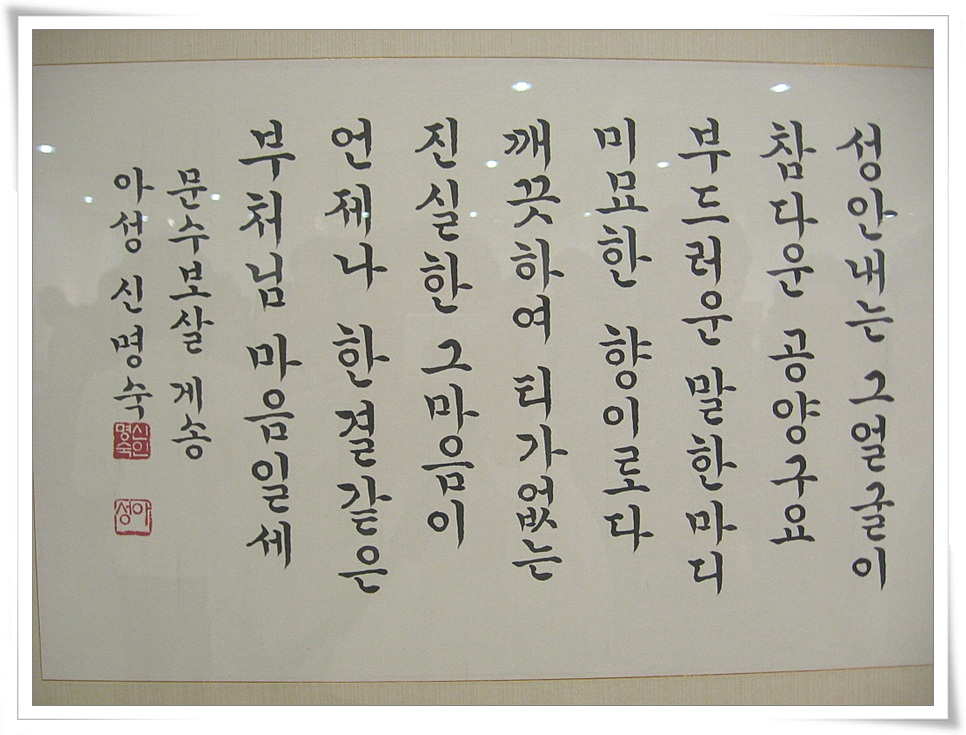 성안내는 그얼굴이
참다운 공양구요
부드러운 말한마디
미묘한 향이로다
깨끗하여 티가없는
진실한 그마음이
언제나 한결같은
부처님 마음일세
문수보살 게송
아성 신명숙
신명숙인
아성